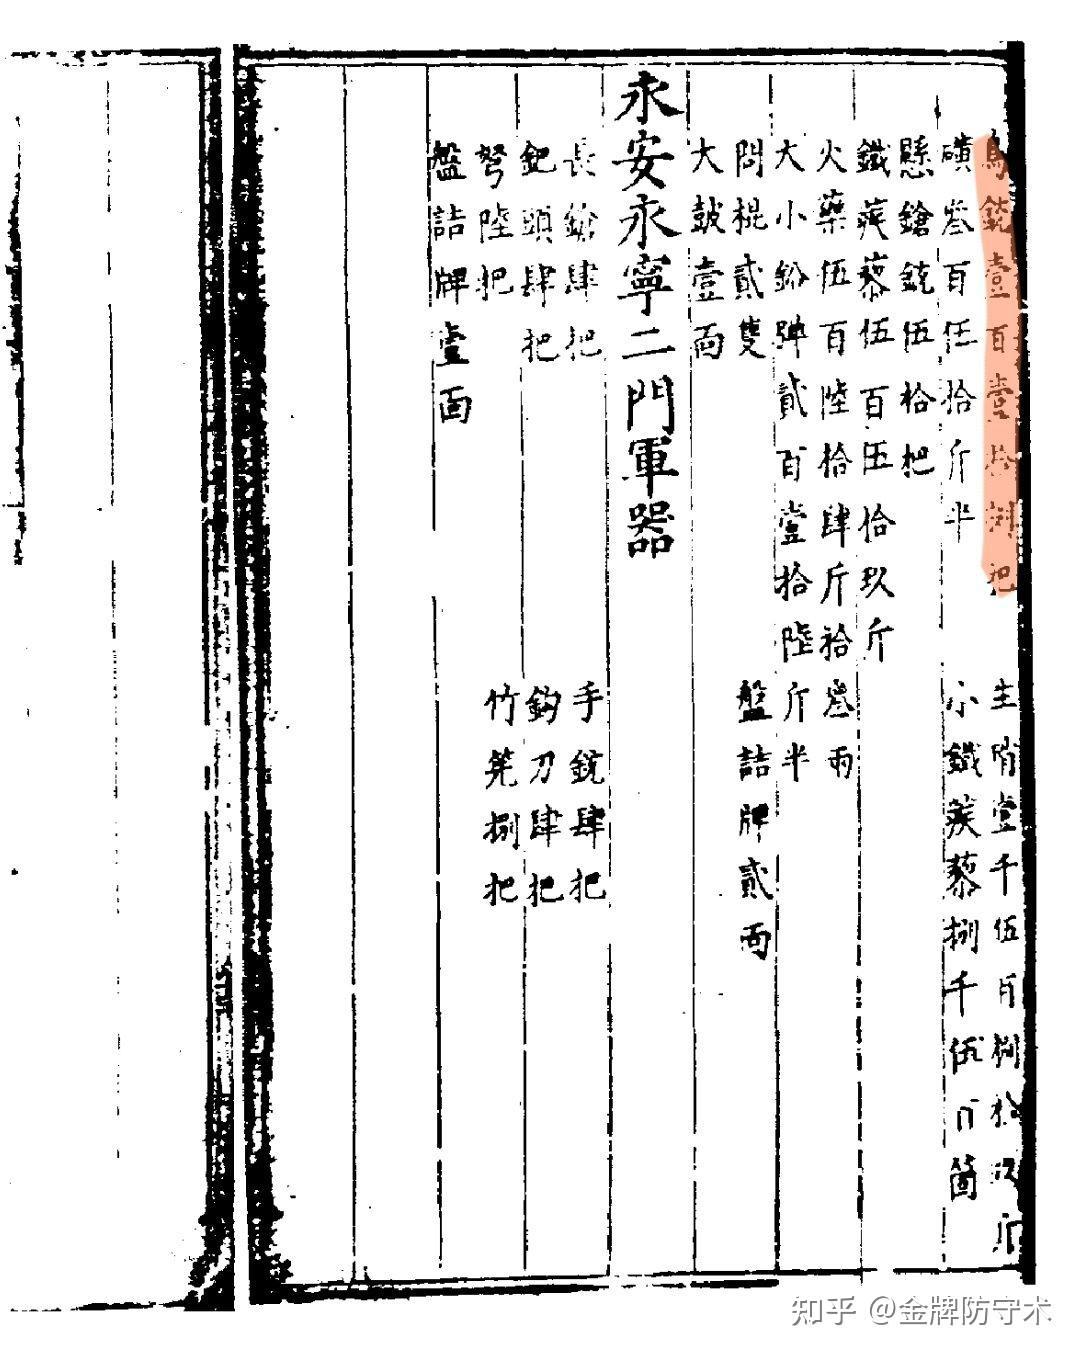 鳥銃壹百壹拾捌把
生硝壹千伍百捌拾玖斤
磺叁百伍拾斤半
小鐵蒺藜捌千伍百箇
懸鎗銃伍拾把
鐵蒺藜伍百伍拾玖斤
火藥伍百陸拾肆斤拾叁兩
大小鉛彈貳百壹拾陸斤半
悶棍貳隻
盤詰牌貳面
大鼓壹面
永安永寧二門軍器
長鎗肆把
手銃肆把
鈀頭肆把
鈎刀肆把
弩陸把
竹筅捌把
盤詰牌壹面
知乎 @金牌防守术